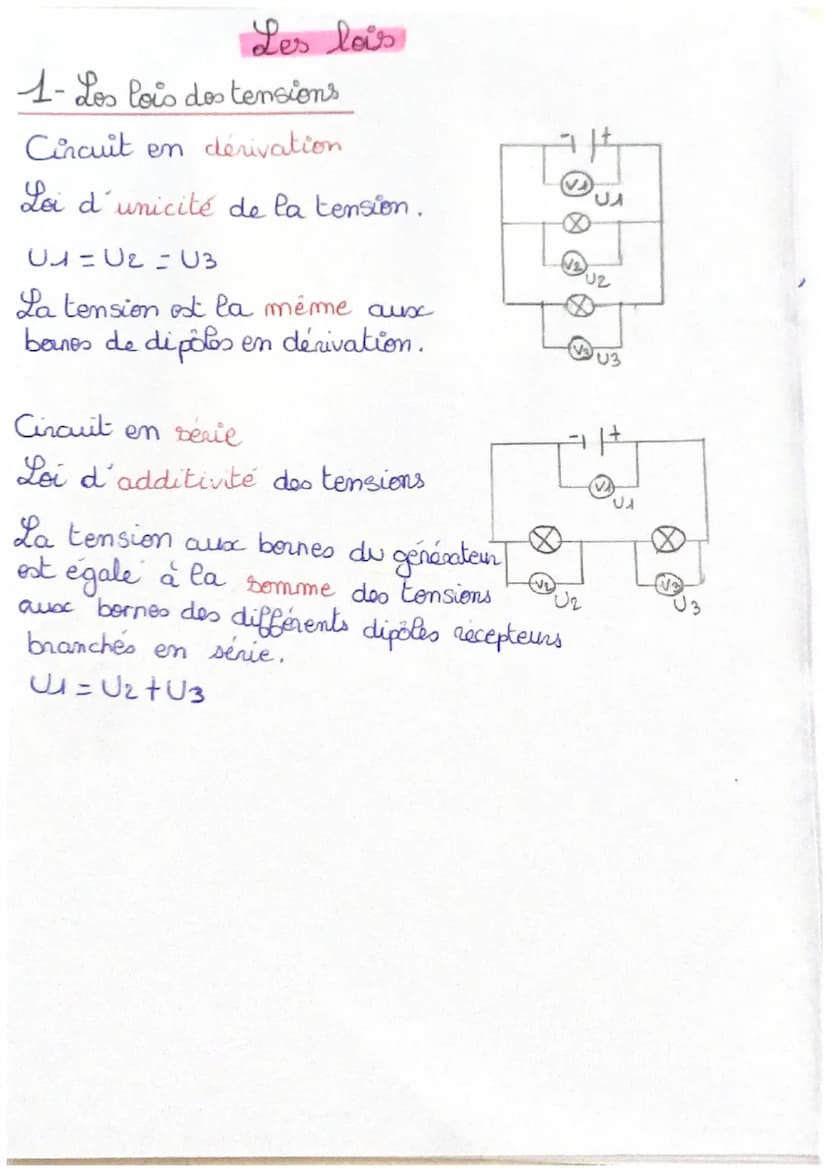 Les lois
1- Les lois des tensions
Circuit en dérivation
Loi d'unicité de la tension.
U1 = U2 = U3
La tension est la même aux
bornes de dipôles en dérivation.
- | +
V1
U1
V2
U2
V3
U3
Circuit en série
Loi d'additivité des tensions
La tension aux bornes du générateur
est égale à la somme des tensions
aux bornes des différents dipôles récepteurs
branchés en série.
U1 = U2 + U3
- | +
V1
U1
V2
U2
V3
U3